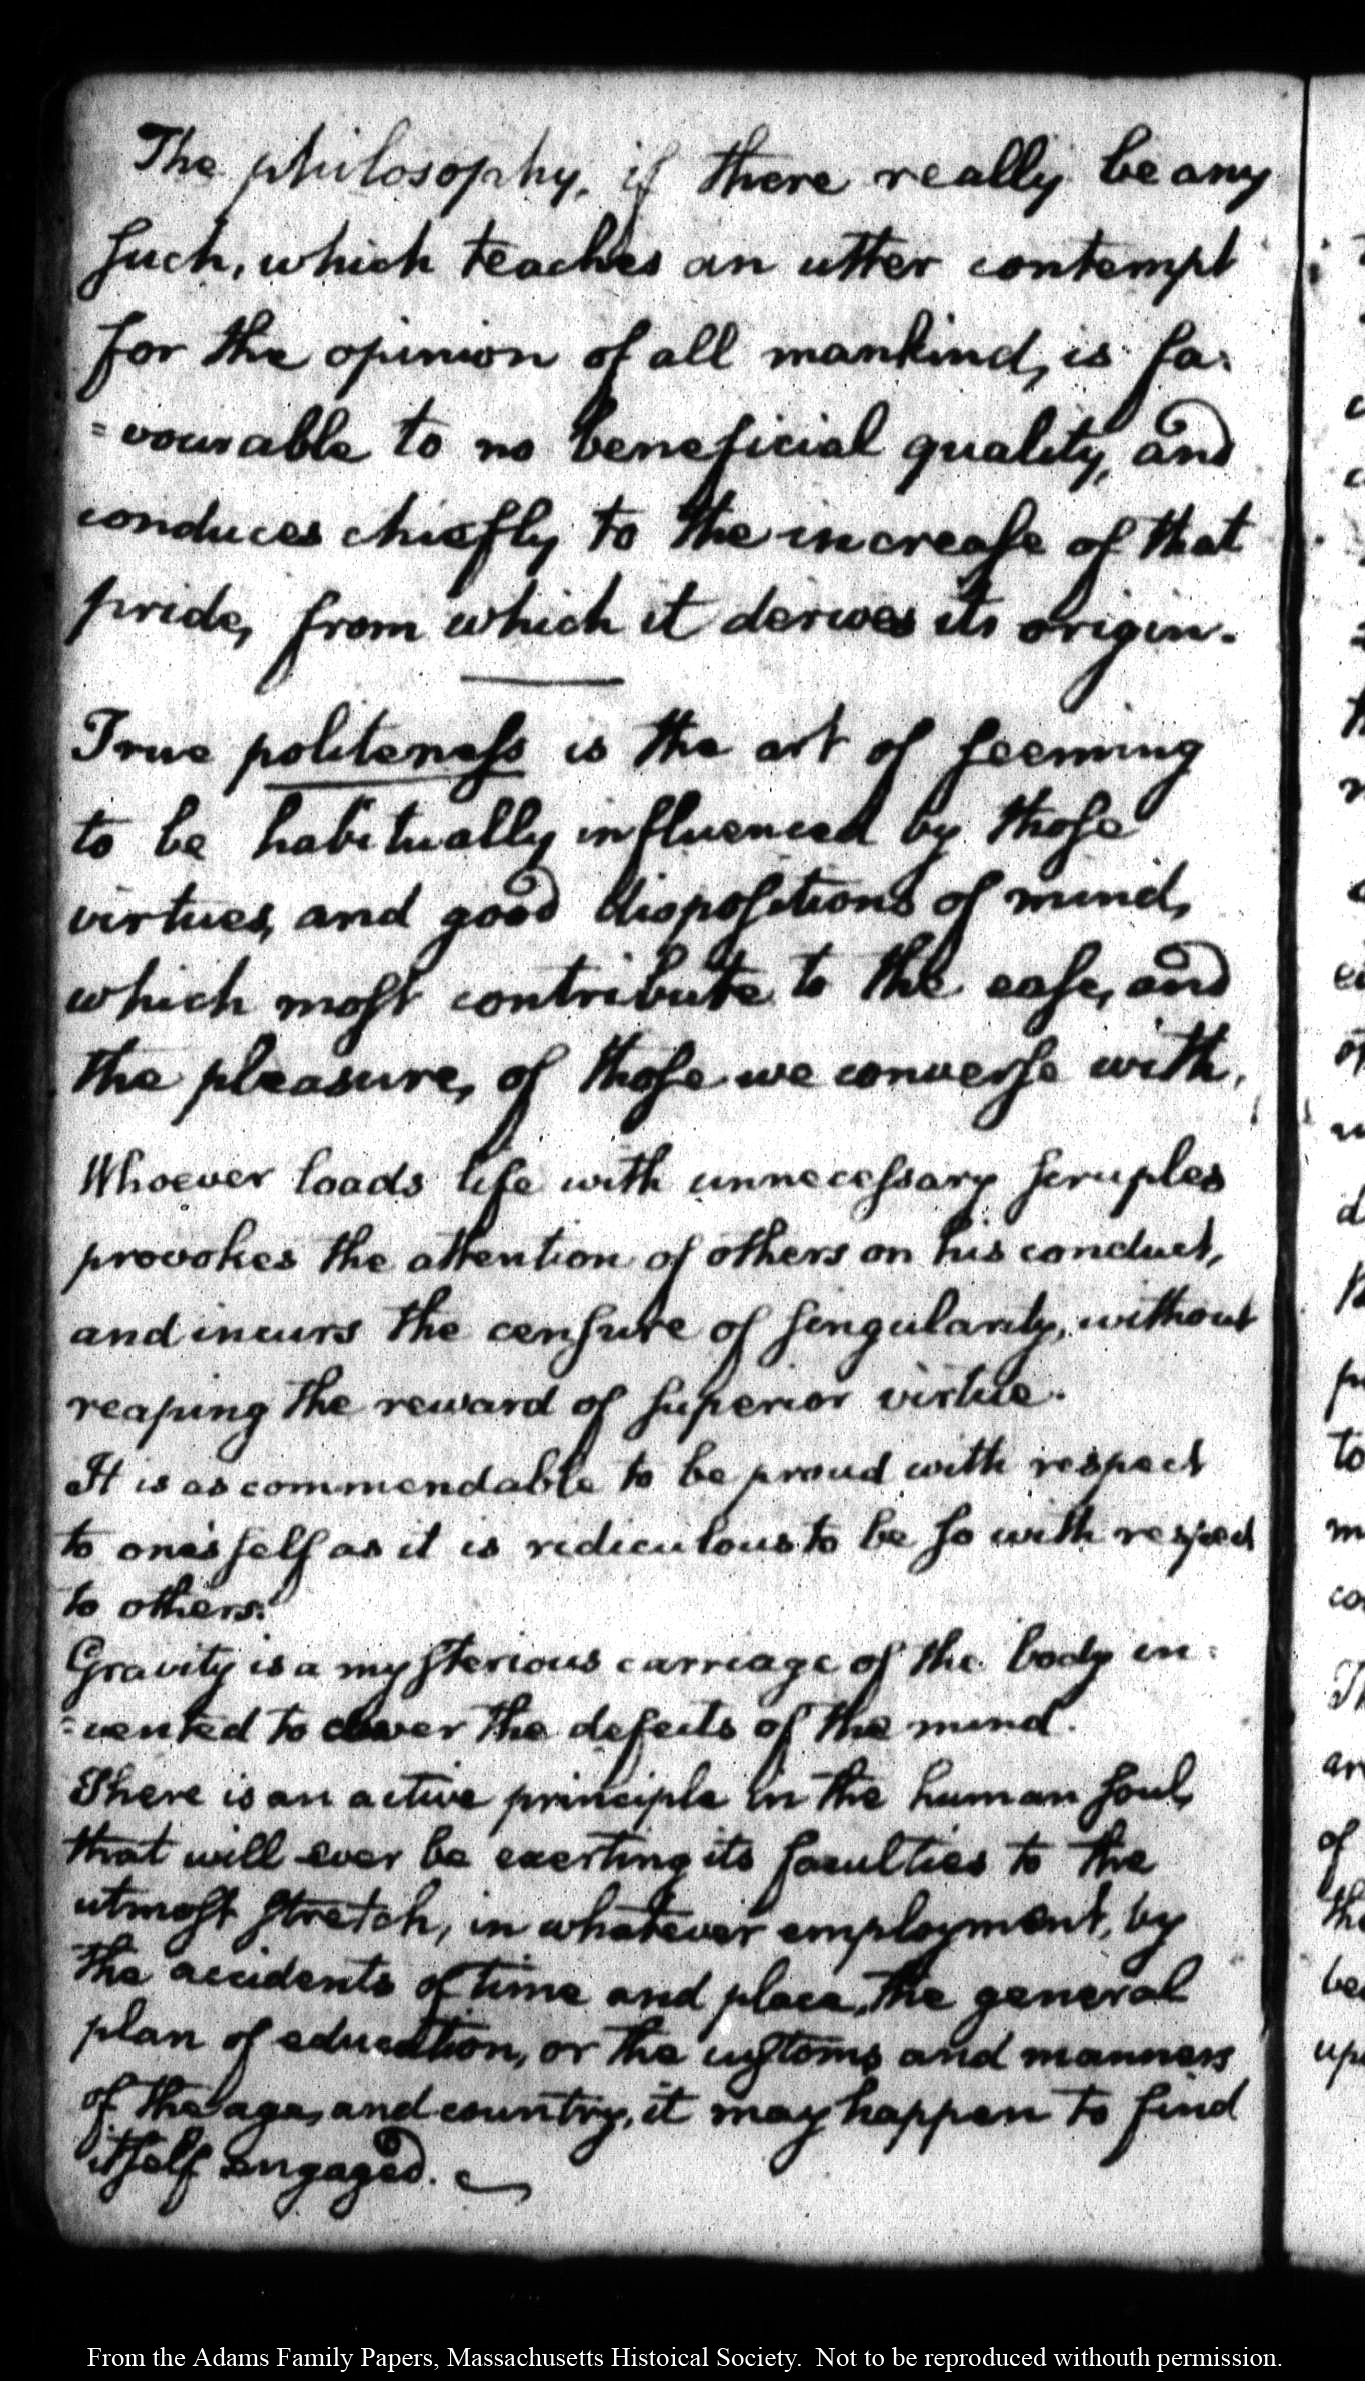 The philosophy, if there really be any
such, which teaches an utter contempt
for the opinion of all mankind, is fa:
=vourable to no beneficial quality, and
conduces chiefly to the increase of that
pride, from which it derives its origin.
True politeness is the art of seeming
to be habitually influenced by those
virtues, and good dispositions of mind,
which most contribute to the ease, and
the pleasure, of those we converse with,
Whoever loads life with unnecessary scruples
provokes the attention of others on his conduct,
and incurs the censure of singularity, without
reaping the reward of superior virtue.
It is as commendable to be proud with respect
to one's self as it is ridiculous to be so with respect
to others.
Gravity is a mysterious carriage of the body in:
=vented to cover the defects of the mind.
There is an active principle in the human soul,
that will ever be exerting its faculties to the
utmost stretch, in whatever employment, by
the accidents of time and place, the general
plan of education, or the customs and manners
of the age, and country, it may happen to find
itself engaged.
From the Adams Family Papers, Massachusetts Histoical Society. Not to be reproduced withouth permission.